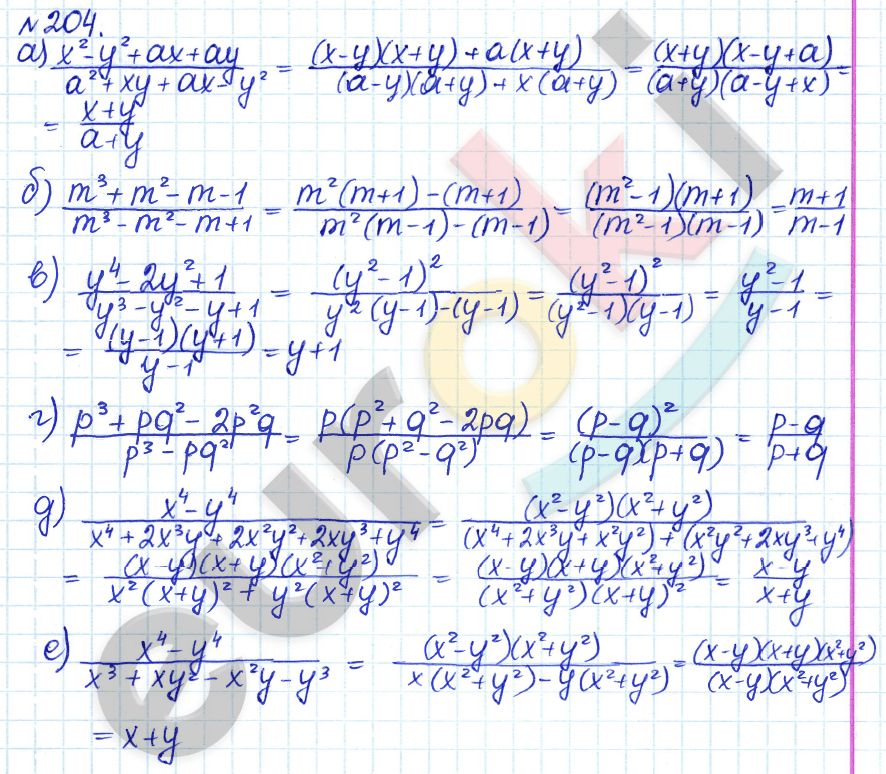 №204.
а) (x²-y²+ax+ay)/(a²+xy+ax-y²) = ((x-y)(x+y)+a(x+y))/((a-y)(a+y)+x(a+y)) = ((x+y)(x-y+a))/((a+y)(a-y+x)) =
= (x+y)/(a+y)
б) (m³+m²-m-1)/(m³-m²-m+1) = (m²(m+1)-(m+1))/(m²(m-1)-(m-1)) = ((m²-1)(m+1))/((m²-1)(m-1)) = (m+1)/(m-1)
в) (y⁴-2y²+1)/(y³-y²-y+1) = (y²-1)²/(y²(y-1)-(y-1)) = (y²-1)²/((y²-1)(y-1)) = (y²-1)/(y-1) =
= ((y-1)(y+1))/(y-1) = y+1
г) (p³+pq²-2p²q)/(p³-pq²) = (p(p²+q²-2pq))/(p(p²-q²)) = (p-q)²/((p-q)(p+q)) = (p-q)/(p+q)
д) (x⁴-y⁴)/(x⁴+2x³y+2x²y²+2xy³+y⁴) = ((x²-y²)(x²+y²))/((x⁴+2x³y+x²y²)+(x²y²+2xy³+y⁴))
= ((x-y)(x+y)(x²+y²))/(x²(x+y)²+y²(x+y)²) = ((x-y)(x+y)(x²+y²))/((x²+y²)(x+y)²) = (x-y)/(x+y)
е) (x⁴-y⁴)/(x³+xy²-x²y-y³) = ((x²-y²)(x²+y²))/(x(x²+y²)-y(x²+y²)) = ((x-y)(x+y)(x²+y²))/((x-y)(x²+y²))
= x+y
euroki